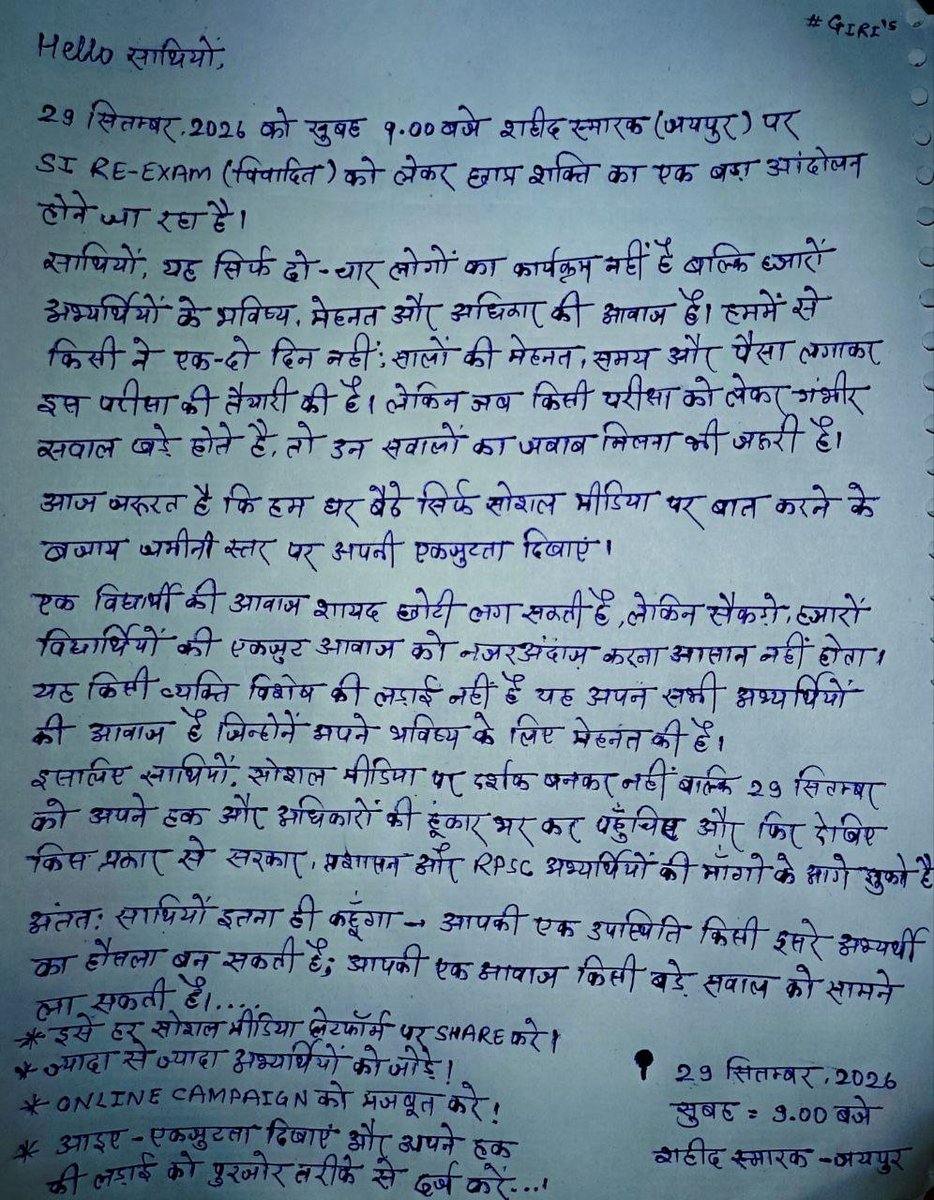 # GIRI's
Hello साथियों,
29 सितम्बर, 2026 को सुबह 9.00 बजे शहीद स्मारक (जयपुर) पर
SI RE-EXAM (विवादित) को लेकर छात्र शक्ति का एक बड़ा आंदोलन
होने जा रहा है।
साथियों, यह सिर्फ दो-चार लोगों का कार्यक्रम नहीं है बल्कि हजारों
अभ्यर्थियों के भविष्य, मेहनत और अधिकार की आवाज है। हममें से
किसी ने एक-दो दिन नहीं; सालों की मेहनत, समय और पैसा लगाकर
इस परीक्षा की तैयारी की है। लेकिन जब किसी परीक्षा को लेकर गंभीर
सवाल खड़े होते है, तो उन सवालों का जवाब मिलना भी जरूरी है।
आज जरूरत है कि हम घर बैठे सिर्फ सोशल मीडिया पर बात करने के
बजाय जमीनी स्तर पर अपनी एकजुटता दिखाएं।
एक विद्यार्थी की आवाज शायद छोटी लग सकती है, लेकिन सैकड़ो, हजारों
विद्यार्थियों की एकजुट आवाज को नजरअंदाज करना आसान नहीं होता।
यह किसी व्यक्ति विशेष की लड़ाई नहीं है यह अपन सभी अभ्यर्थियों
की आवाज है जिन्होनें अपने भविष्य के लिए मेहनत की है।
इसलिए साथियों, सोशल मीडिया पर दर्शक बनकर नहीं बल्कि 29 सितम्बर
को अपने हक और अधिकारों की हूंकार भर कर पहुँचिए और फिर देखिए
किस प्रकार से सरकार, प्रशासन और RPSC अभ्यर्थियों की माँगो के आगे झुको है
अंतत: साथियों इतना ही कहूँगा → आपकी एक उपस्थिति किसी दूसरे अभ्यर्थी
का हौसला बन सकती है; आपकी एक आवाज किसी बड़े सवाल को सामने
ला सकती है।....
* इसे हर सोशल मीडिया प्लेटफॉर्म पर SHARE करे।
* ज्यादा से ज्यादा अभ्यर्थियों को जोड़े!
* ONLINE CAMPAIGN को मजबूत करे!
* आइए - एकजुटता दिखाएं और अपने हक
की लड़ाई को पुरजोर तरीके से दर्ज करें...!
29 सितम्बर, 2026
सुबह = 9.00 बजे
शहीद स्मारक - जयपुर